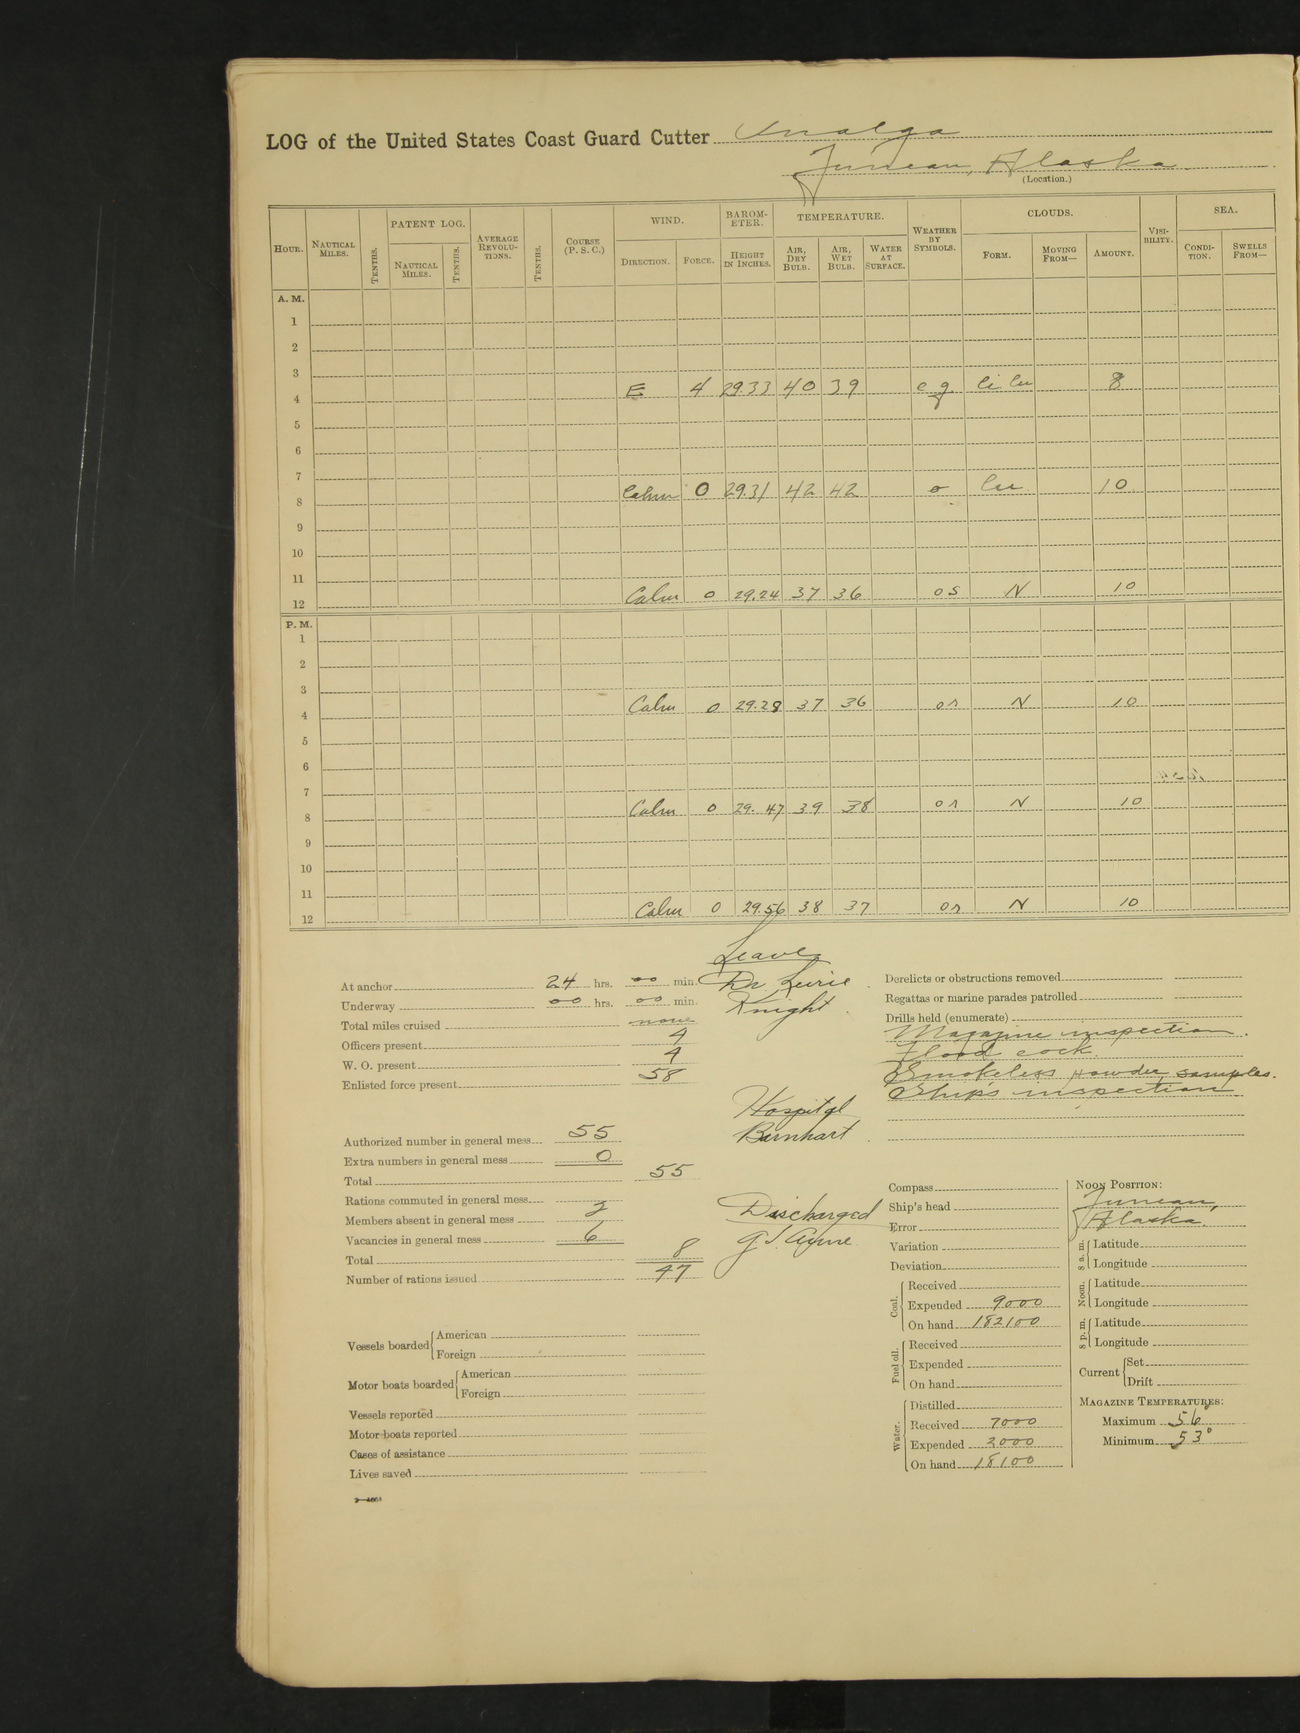 LOG of the United States Coast Guard Cutter Unalga
Juneau, Alaska.
(Location.)
HOUR. NAUTICAL MILES. TENTHS. PATENT LOG. NAUTICAL MILES. TENTHS. AVERAGE REVOLUTIONS. TENTHS. COURSE (P. S. C.) WIND. DIRECTION. FORCE. BAROMETER. HEIGHT IN INCHES. TEMPERATURE. AIR, DRY BULB. AIR, WET BULB. WATER AT SURFACE. WEATHER BY SYMBOLS. CLOUDS. FORM. MOVING FROM— AMOUNT. VISIBILITY. SEA. CONDITION. SWELLS FROM—
A. M.
1
2
3
4 E 4 29.33 40 39 c g Ci Cu 8
5
6
7
8 Calm 0 29.31 42 42 o Cu 10
9
10
11
12 Calm 0 29.24 37 36 o s N 10
P. M.
1
2
3
4 Calm 0 29.28 37 36 o r N 10
5
6
7
8 Calm 0 29.47 39 38 o r N 10
9
10
11
12 Calm 0 29.56 38 37 o r N 10
At anchor 24 hrs. 00 min.
Underway 00 hrs. 00 min.
Total miles cruised none
Officers present 4
W. O. present 4
Enlisted force present 58
Authorized number in general mess 55
Extra numbers in general mess 0
Total 55
Rations commuted in general mess
Members absent in general mess 2
Vacancies in general mess 6
Total 8
Number of rations issued 47
Vessels boarded American
Foreign
Motor boats boarded American
Foreign
Vessels reported
Motor boats reported
Cases of assistance
Lives saved
Leave
Knight
Hospital
Barnhart
Discharged
Derelicts or obstructions removed
Regattas or marine parades patrolled
Drills held (enumerate)
Magazine inspection.
Flood cock.
Smokeless powder samples.
Ship's inspection
Compass
Ship's head
Error
Variation
Deviation
Coal. Received
Expended 9000
On hand 182100
Fuel oil. Received
Expended
On hand
Water. Distilled
Received 7000
Expended 2000
On hand 18100
NOON POSITION:
Juneau,
Alaska.
8 a. m. Latitude
Longitude
Noon. Latitude
Longitude
8 p. m. Latitude
Longitude
Current Set
Drift
MAGAZINE TEMPERATURES:
Maximum 56
Minimum 53°